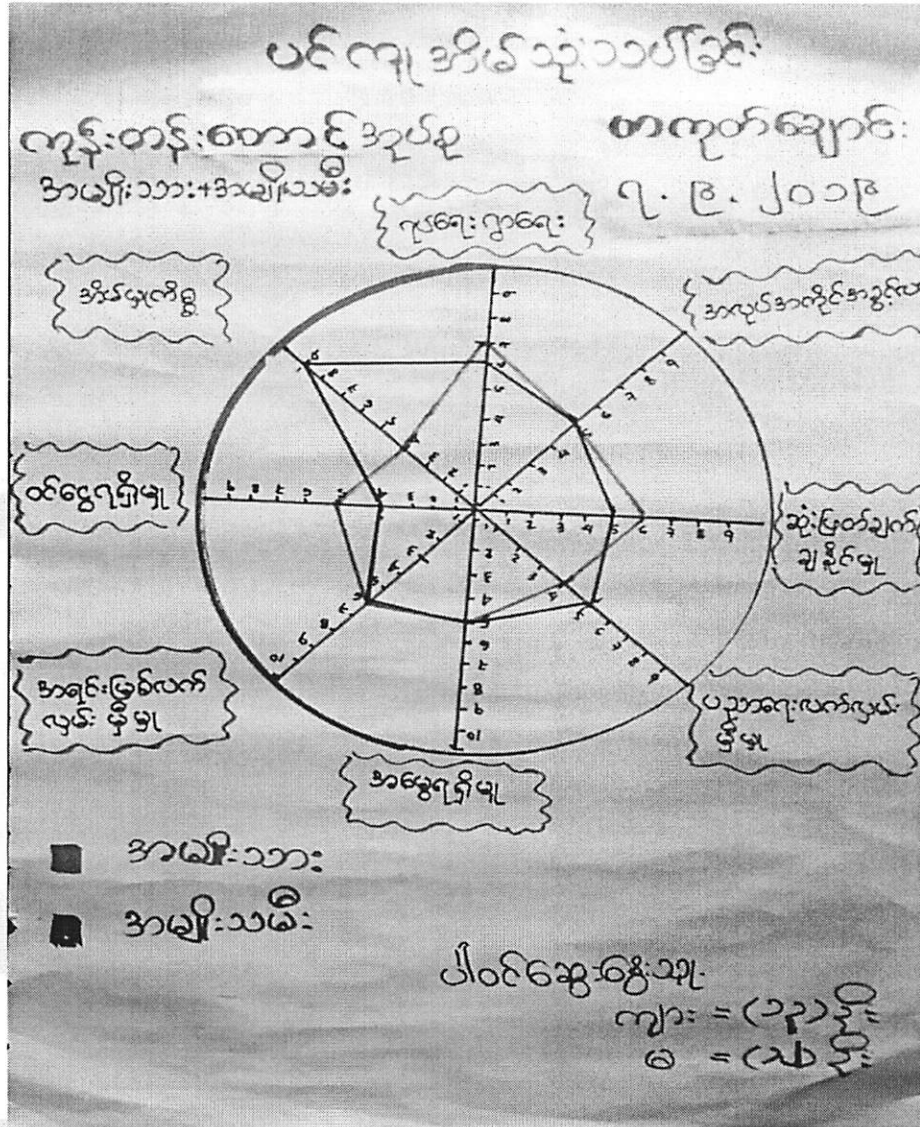 ပင်ကူအိမ်သုံးသပ်ခြင်း
ကုန်းတန်းတောင့်အုပ်စု
တကုတ်ချောင်း
အမျိုးသား+အမျိုးသမီး
၇.၉.၂၀၁၉
ရပ်ရေးရွာရေး
အိမ်မှုကိစ္စ
အလုပ်အကိုင်အခွင့်
ဝင်ငွေရရှိမှု
ဆုံးဖြတ်ချက်
ချနိုင်မှု
အရင်းမြစ်လက်
လှမ်းမှီမှု
ပညာရေးလက်လှမ်း
မှီမှု
အမွေရရှိမှု
အမျိုးသား
အမျိုးသမီး
ပါဝင်ဆွေးနွေးသူ
ကျား = (၁၃) ဦး
မ = ဦး